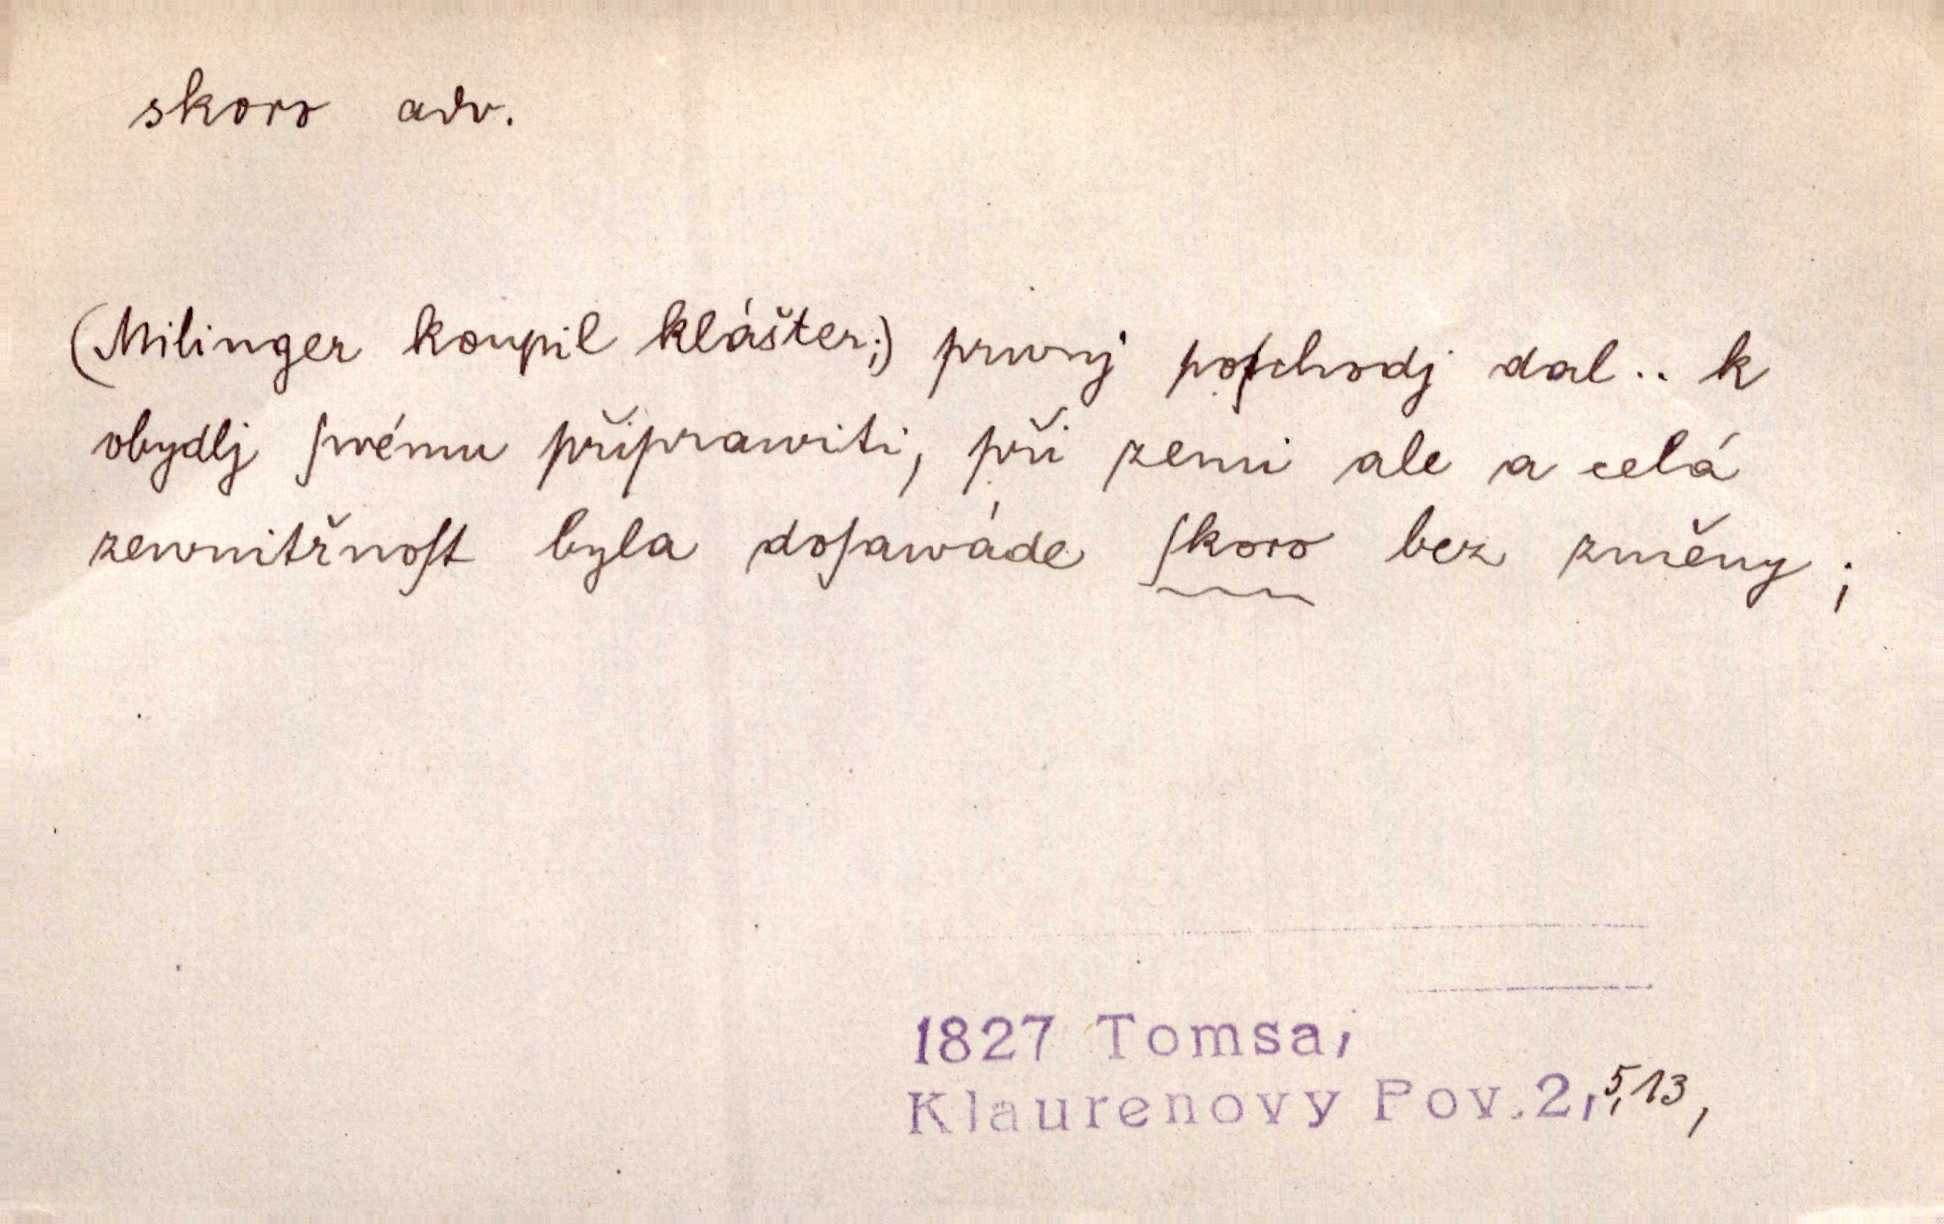 skoro adv.
(Milinger koupil klášter;) prwnj poſchodj dal.. k
obydlj ſwému připrawiti, při zemi ale a celá
zewnitřnoſt byla doſawáde ſkoro bez změny;
1827 Tomsa,
Klaurenovy Pov.2,5,13,